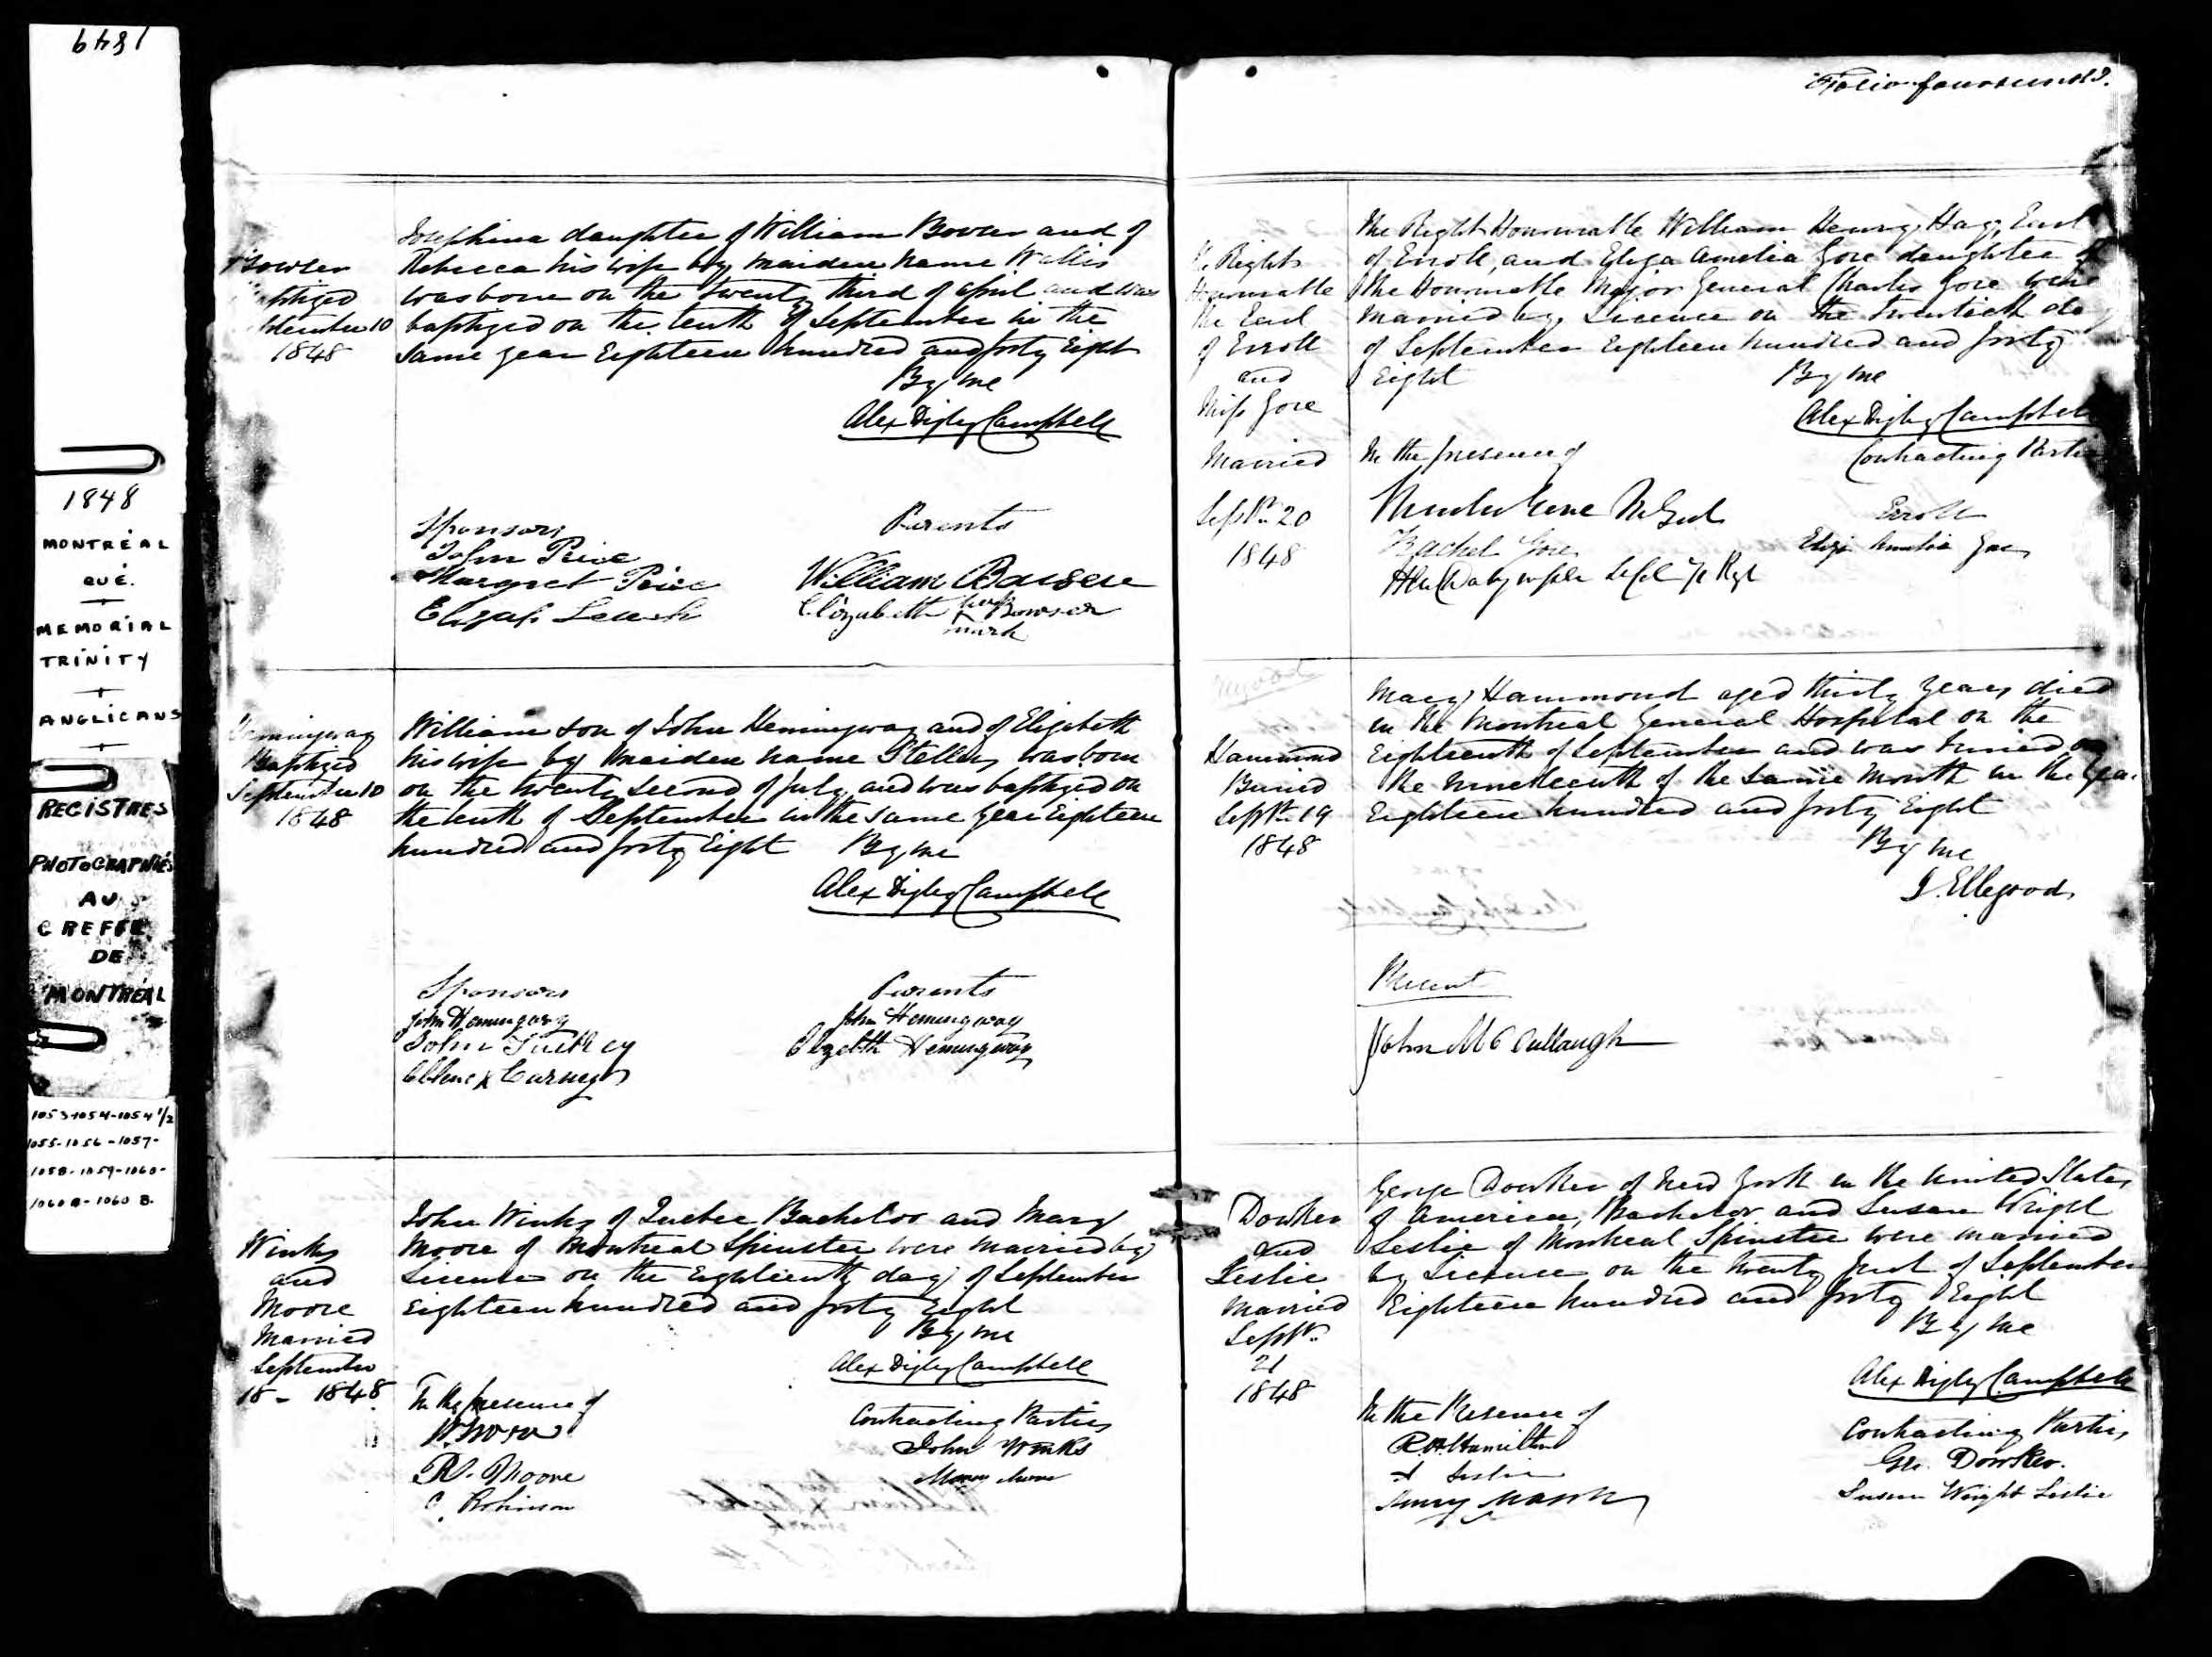 1849
1848
MONTRÉAL
QUÉ.
MEMORIAL
TRINITY
ANGLICANS
REGISTRES
PHOTOGRAPHIÉS
AU
GREFFE
DE
MONTRÉAL
1053-1054-1054 1/2
1055-1056-1057-
1058-1059-1060-
1060 A-1060 B.
Bowser
Baptized
September 10
1848
Josephina daughter of William Bowser and of
Rebecca his wife by maiden name Wallis
was born on the twenty third of April and was
baptized on the tenth of September in the
same year Eighteen hundred and forty Eight
By me
Alex Digby Campbell
Sponsors
John Price
Margret Price
Parents
William Bowser
Elizabeth her Bowser
mark
Hemingway
Baptized
September 10
1848
William son of John Hemingway and of Elizabeth
his wife by maiden name was born
on the twenty second of July and was baptized on
the tenth of September in the same year Eighteen
hundred and forty Eight By me
Alex Digby Campbell
Sponsors
John Hemingway
John
Ellene X Carney
Parents
John Hemingway
Elizabeth Hemingway
Winks
and
Moore
Married
September
18 - 1848
John Winks of Quebec Bachelor and Mary
Moore of Montreal Spinster were married by
License on the Eighteenth day of September
Eighteen hundred and forty Eight
By me
Alex Digby Campbell
In the presence of
R. Moore
C. Robinson
Contracting Parties
John Winks
Mary Moore
Folio fourteenth
Right
Honourable
the Earl
of Erroll
and
Miss Gore
Married
Septr. 20
1848
The Right Honourable William Henry Hay, Earl
of Erroll, and Eliza Amelia Gore daughter of
the Honourable Major General Charles Gore were
married by License on the twentieth day
of September Eighteen hundred and forty
Eight By me
Alex Digby Campbell
In the presence of
Charles Gore M Genl
Rachel Gore
Contracting Parties
Erroll
Eliza Amelia Gore
Hammond
Buried
Septr. 19
1848
Mary Hammond aged thirty years died
in the Montreal General Hospital on the
Eighteenth of September and was buried on
the nineteenth of the same month in the year
Eighteen hundred and forty Eight
By me
J. Ellegood
Present
John McCullaugh
Dowker
and
Leslie
Married
Septr.
21
1848
George Dowker of New York in the United States
of America, Bachelor and Susan Wright
Leslie of Montreal Spinster were married
by License on the twenty first of September
Eighteen hundred and forty Eight
By me
Alex Digby Campbell
In the Presence of
R. H. Hamilton
Leslie
Contracting Parties
Geo. Dowker.
Susan Wright Leslie